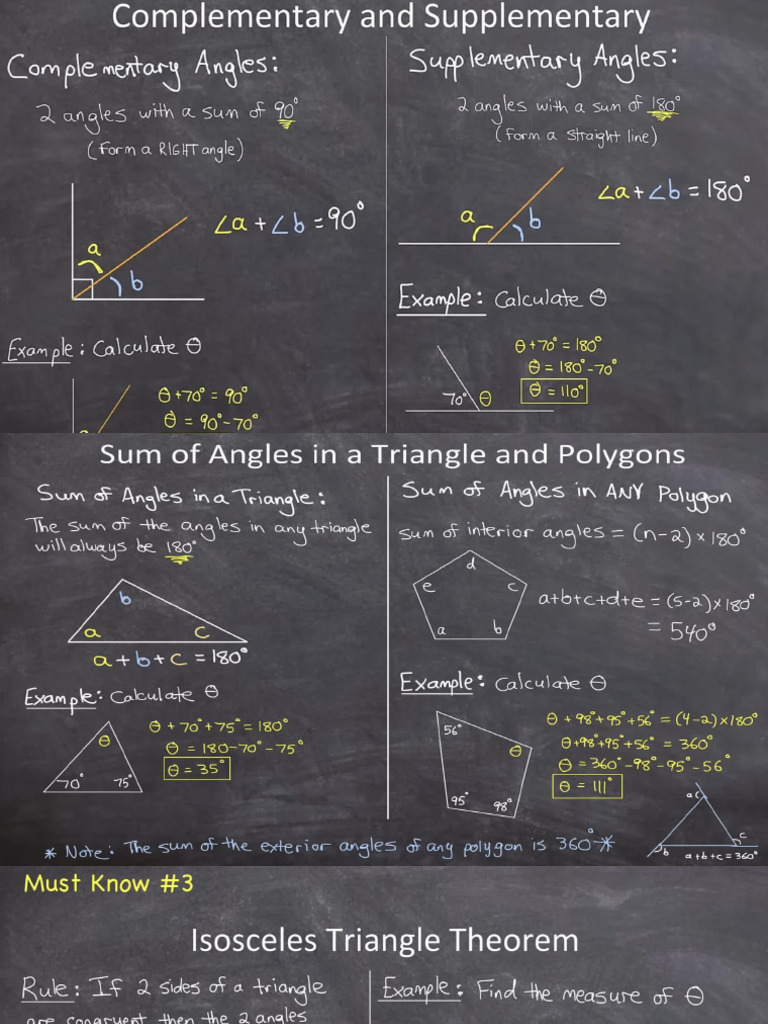 Complementary and Supplementary
Complementary Angles:
2 angles with a sum of 90°
(form a RIGHT angle)
a
b
∠a + ∠b = 90°
Example: Calculate θ
θ+70° = 90°
θ = 90°-70°
Supplementary Angles:
2 angles with a sum of 180°
(form a straight line)
a
b
∠a + ∠b = 180°
Example: Calculate θ
70°
θ
θ+70° = 180°
θ = 180°-70°
θ = 110°
Sum of Angles in a Triangle and Polygons
Sum of Angles in a Triangle:
The sum of the angles in any triangle
will always be 180°
b
a
c
a + b + c = 180°
Example: Calculate θ
θ
70°
75°
θ + 70° + 75° = 180°
θ = 180-70°-75°
θ = 35°
Sum of Angles in ANY Polygon
sum of interior angles = (n-2) × 180°
d
e
c
a
b
a+b+c+d+e = (5-2)×180°
= 540°
Example: Calculate θ
56°
θ
95°
98°
θ + 98°+95°+56° = (4-2)×180°
θ+98°+95°+56° = 360°
θ = 360°-98°-95°-56°
θ = 111°
a
b
c
a+b+c = 360°
* Note: The sum of the exterior angles of any polygon is 360° *
Must Know #3
Isosceles Triangle Theorem
Rule: If 2 sides of a triangle
are congruent then the 2 angles
Example: Find the measure of θ